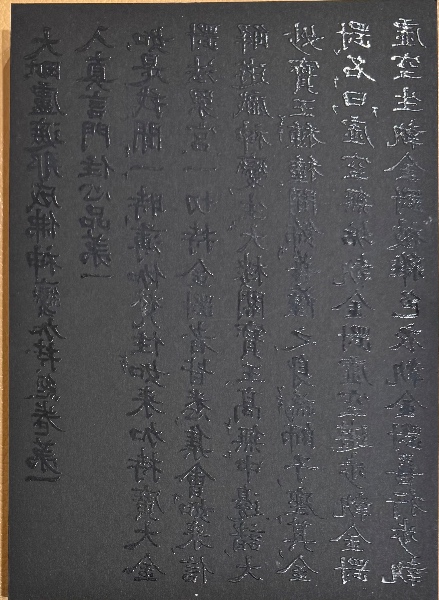 大毗盧遮那成佛神變加持經卷第一
入真言門住心品第一
如是我聞一時薄伽梵住如來加持廣大金
剛法界宮一切持金剛者皆悉集會如來信
解遊戲神變生大樓閣寶王高無中邊諸大
妙寶王種種間飾菩薩之身為師子座其金
剛名曰虛空無垢執金剛虛空遊步執金剛
虛空生執金剛被雜色衣執金剛善行步執